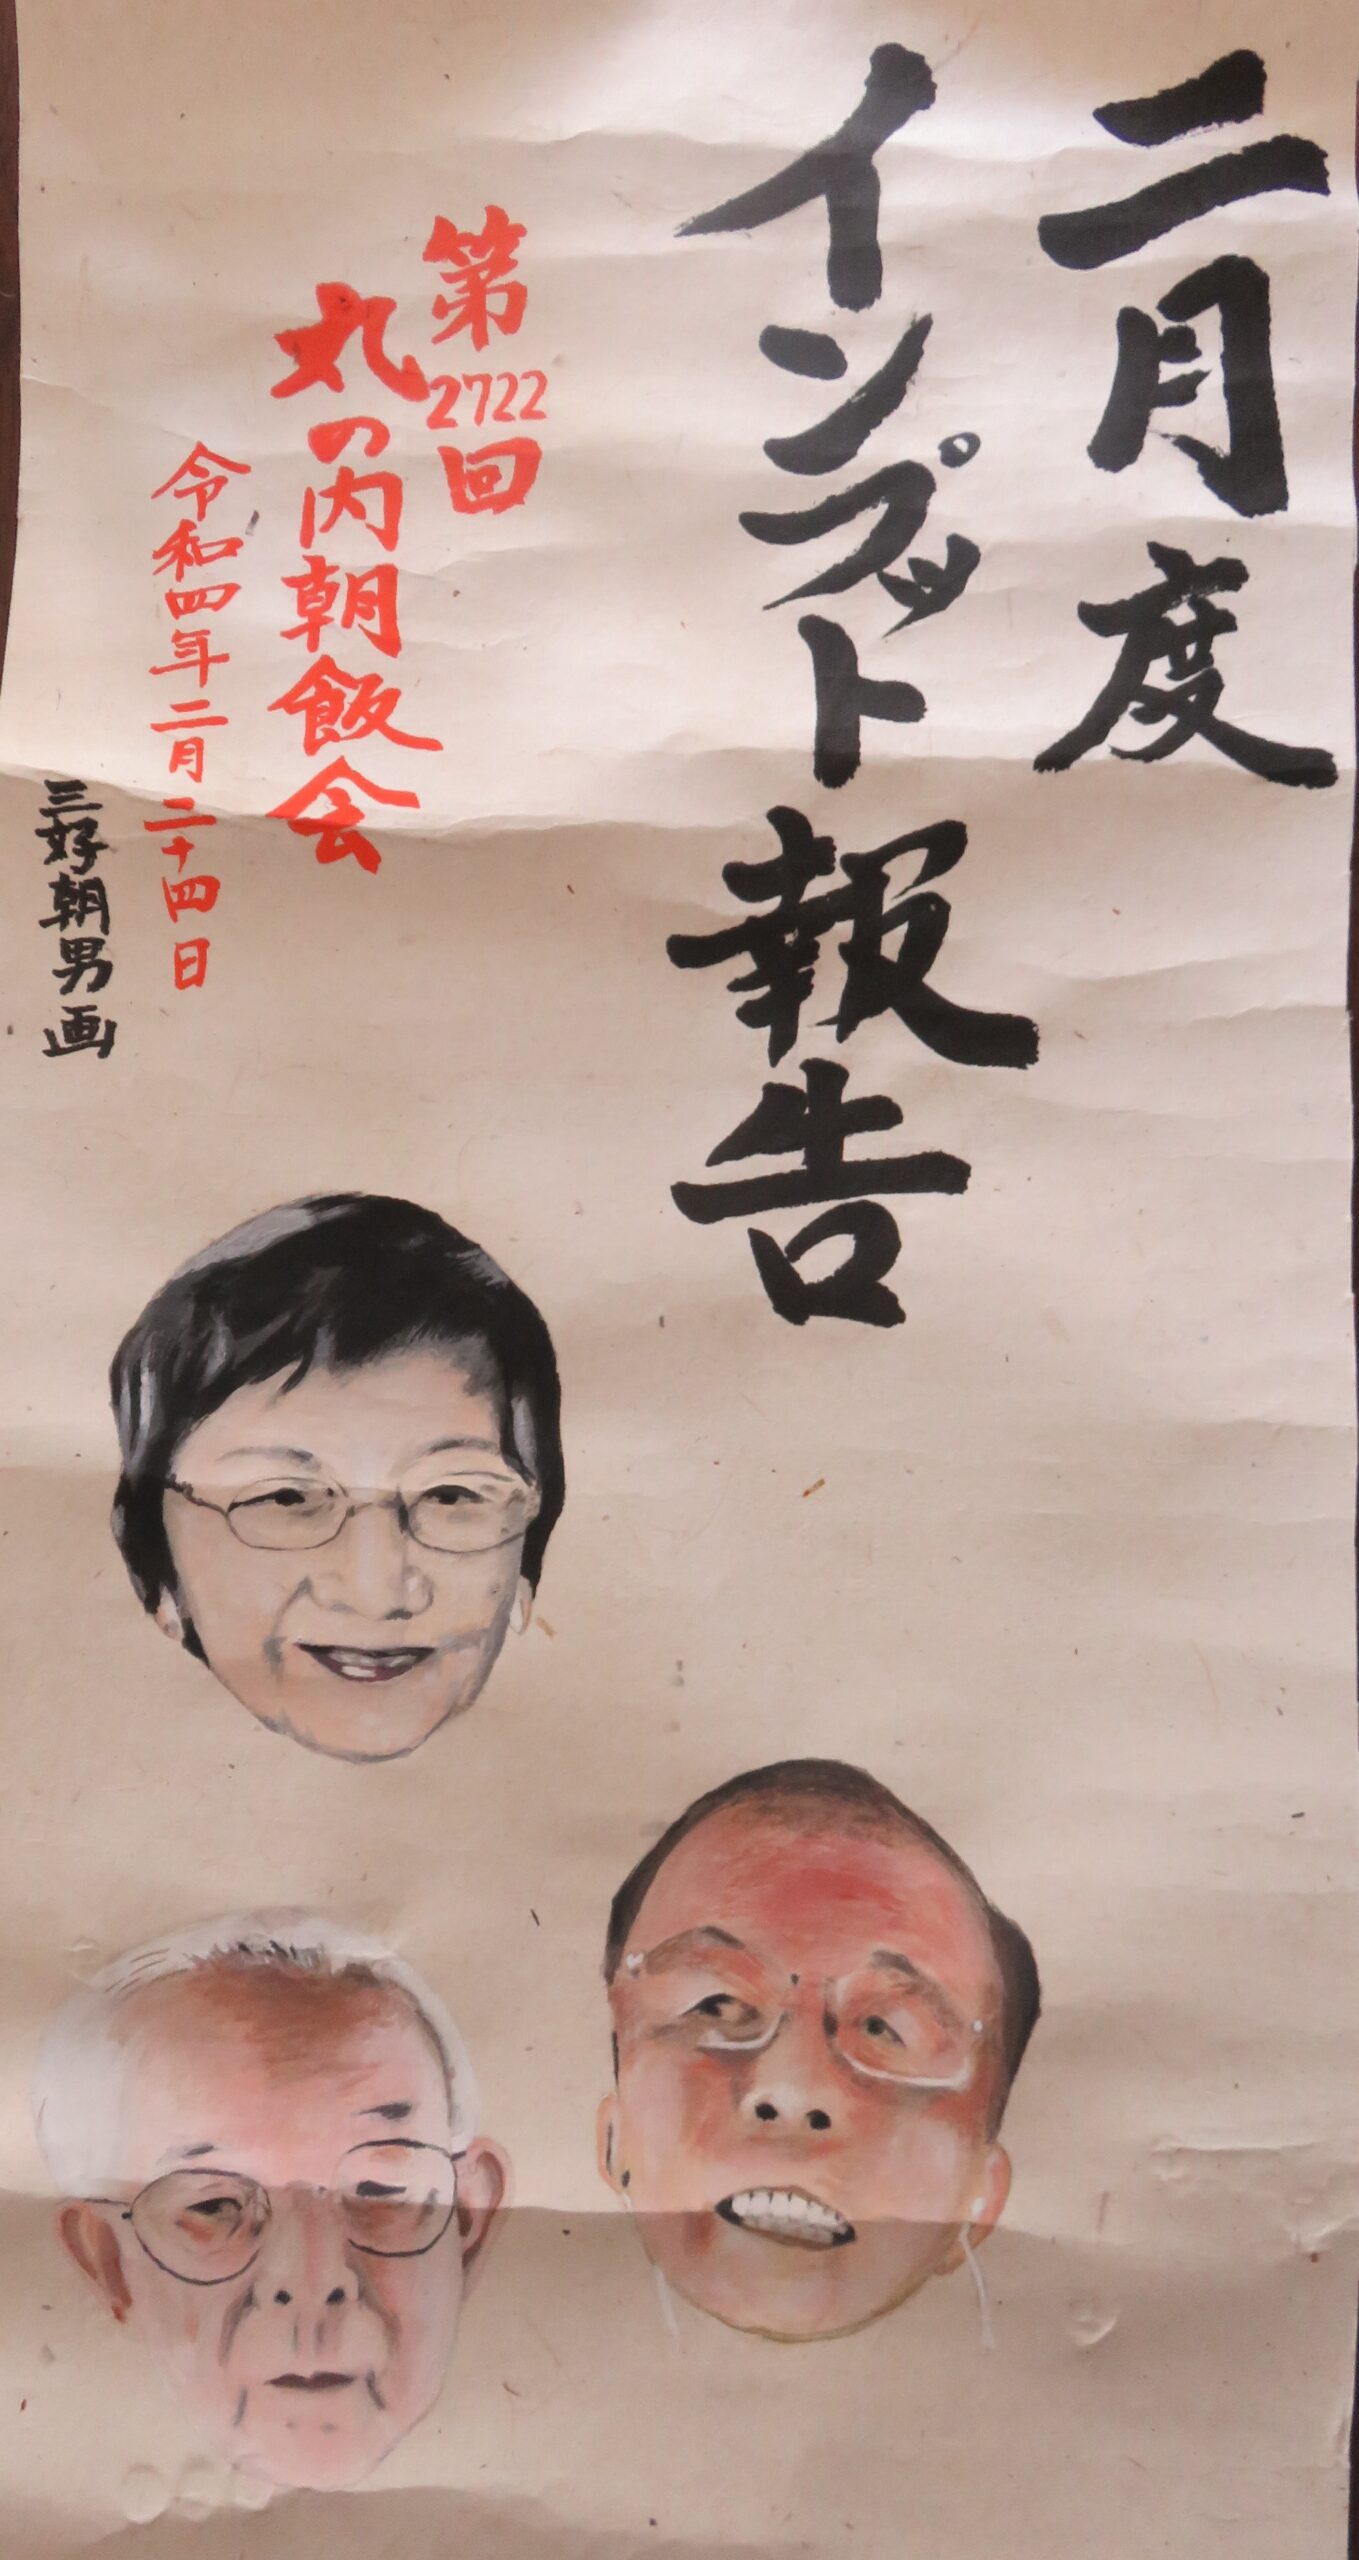 二月度
インプット報告
第2722回
丸の内朝飯会
令和四年二月二十四日
三好朝男画